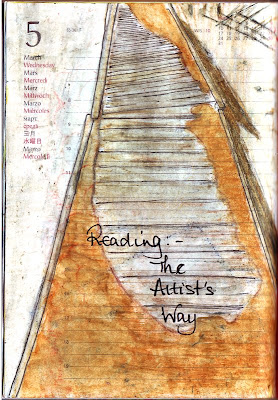 5
March
Wednesday
Mars
Mercredi
März
Mittwoch
Marzo
Miércoles
март
среда
三月
水曜日
Março
Reading:-
The
Artist's
Way